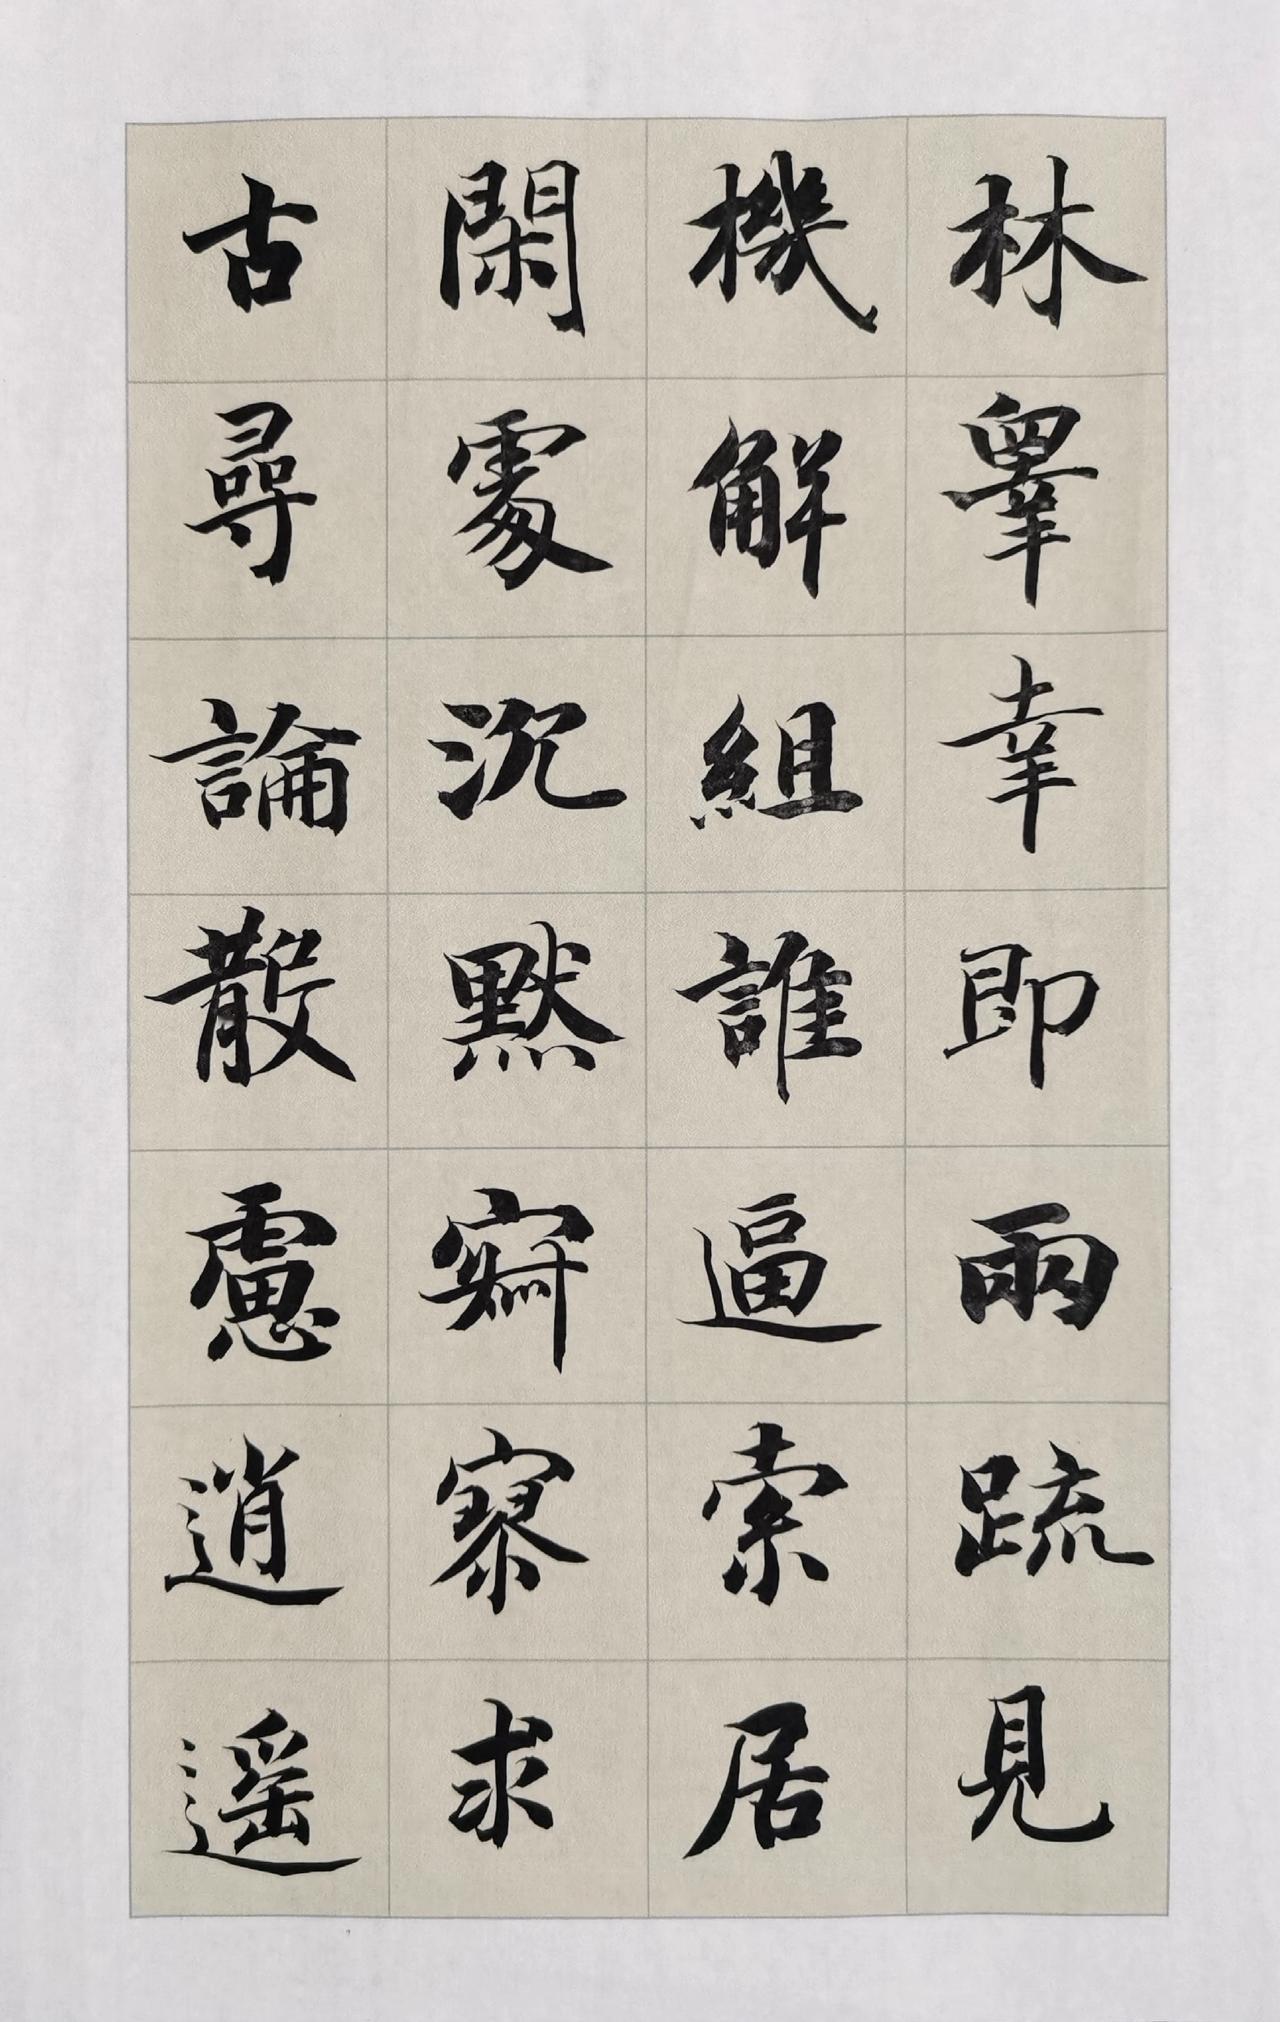 林睾幸即兩疏見
機解組誰逼索居
閑處沉默寂寥求
古尋論散慮逍遙